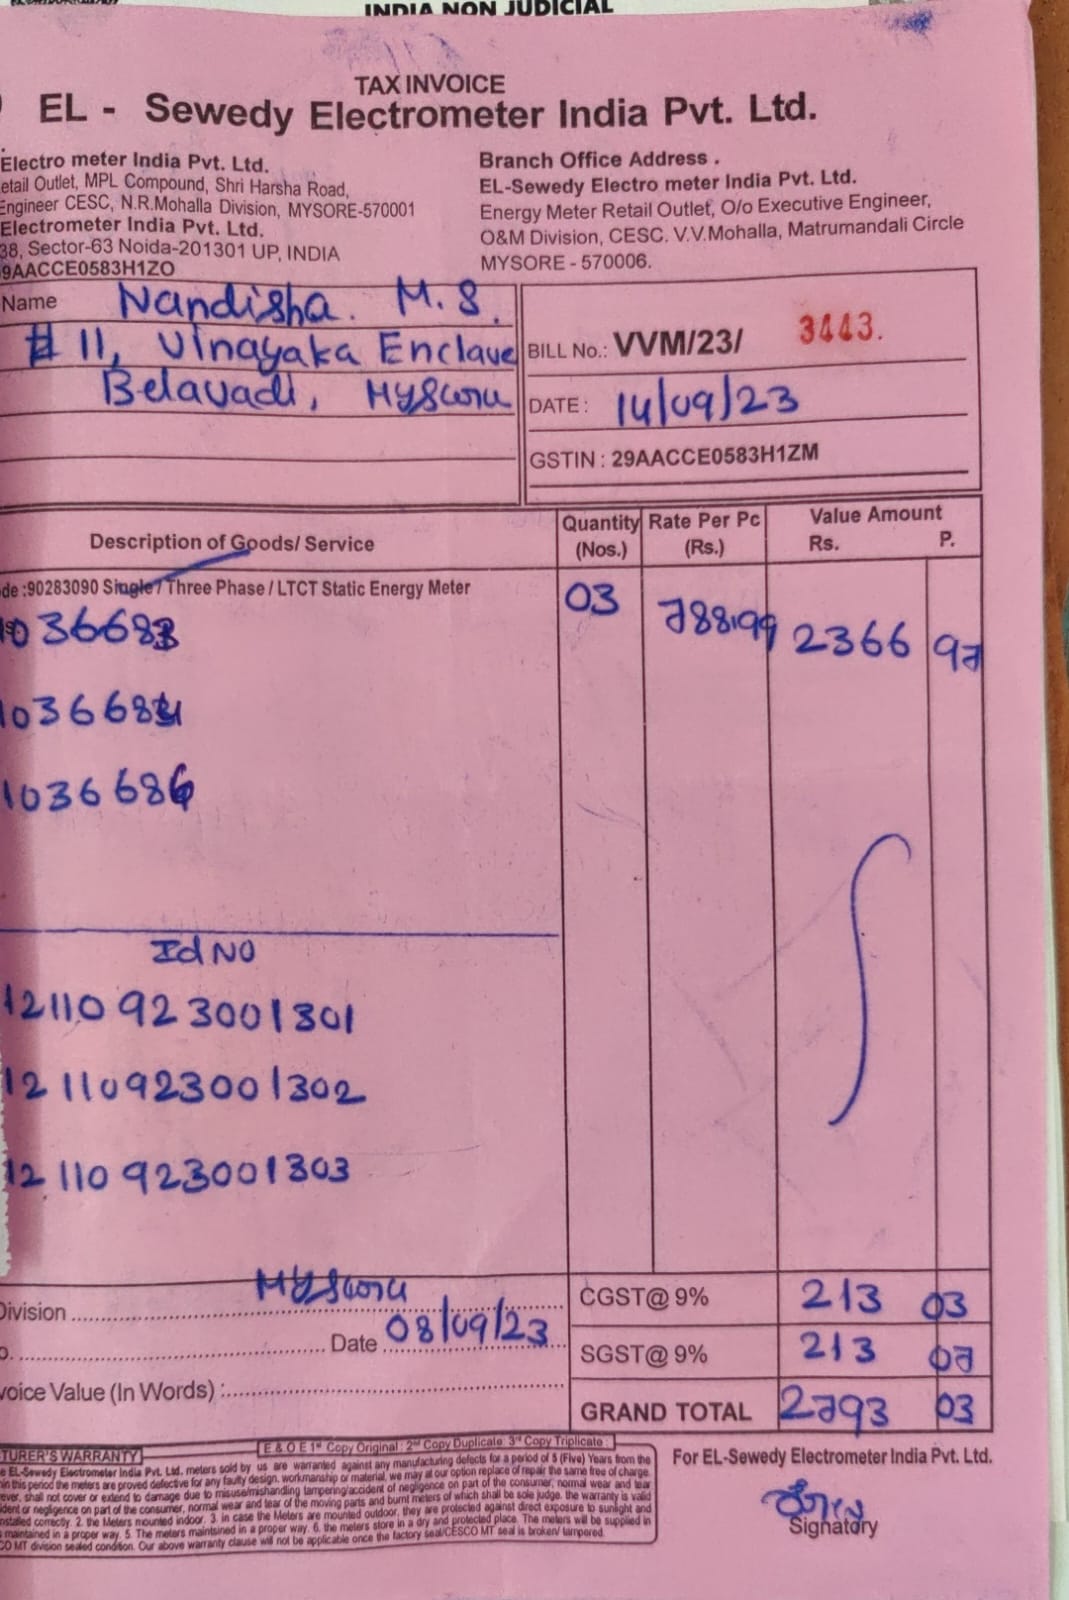 INDIA NON JUDICIAL
TAX INVOICE
EL - Sewedy Electrometer India Pvt. Ltd.
Electro meter India Pvt. Ltd.
etail Outlet, MPL Compound, Shri Harsha Road,
Engineer CESC, N.R.Mohalla Division, MYSORE-570001
Electrometer India Pvt. Ltd.
38, Sector-63 Noida-201301 UP, INDIA
9AACCE0583H1ZO
Branch Office Address .
EL-Sewedy Electro meter India Pvt. Ltd.
Energy Meter Retail Outlet, O/o Executive Engineer,
O&M Division, CESC. V.V.Mohalla, Matrumandali Circle
MYSORE - 570006.
Name Nandisha. M.S.
# 11, Vinayaka Enclave
Belavadi, Mysuru
BILL No.: VVM/23/ 3443.
DATE : 14/09/23
GSTIN : 29AACCE0583H1ZM
Description of Goods/ Service Quantity (Nos.) Rate Per Pc (Rs.) Value Amount Rs. P.
de :90283090 Single / Three Phase / LTCT Static Energy Meter
03 788.99 2366 97
1036683
1036684
1036686
Id NO
12110923001301
12110923001302
12110923001303
Division Mysuru
o. Date 08/09/23
voice Value (In Words) :
CGST@ 9% 213 03
SGST@ 9% 213 03
GRAND TOTAL 2793 03
E & O E 1st Copy Original : 2nd Copy Duplicate 3rd Copy Triplicate :
TURER'S WARRANTY
e EL-Sewedy Electrometer India Pvt. Ltd. meters sold by us are warranted against any manufacturing defects for a period of 5 (Five) Years from the
in this period the meters are proved defective for any faulty design, workmanship or material, we may at our option replace of repair the same free of charge.
ever, shall not cover or extend to damage due to misuse/mishandling tampering/accident of negligence on part of the consumer, normal wear and tear
dent or negligence on part of the consumer, normal wear and tear of the moving parts and burnt meters of which shall be sole judge. the warranty is valid
nstalled correctly. 2. the Meters mounted indoor. 3. in case the Meters are mounted outdoor, they are protected against direct exposure to sunlight and
maintained in a proper way. 5. The meters maintained in a proper way. 6. the meters store in a dry and protected place. The meters will be supplied in
O MT division sealed condition. Our above warranty clause will not be applicable once the factory seal/CESCO MT seal is broken/ tampered.
For EL-Sewedy Electrometer India Pvt. Ltd.
Signatory